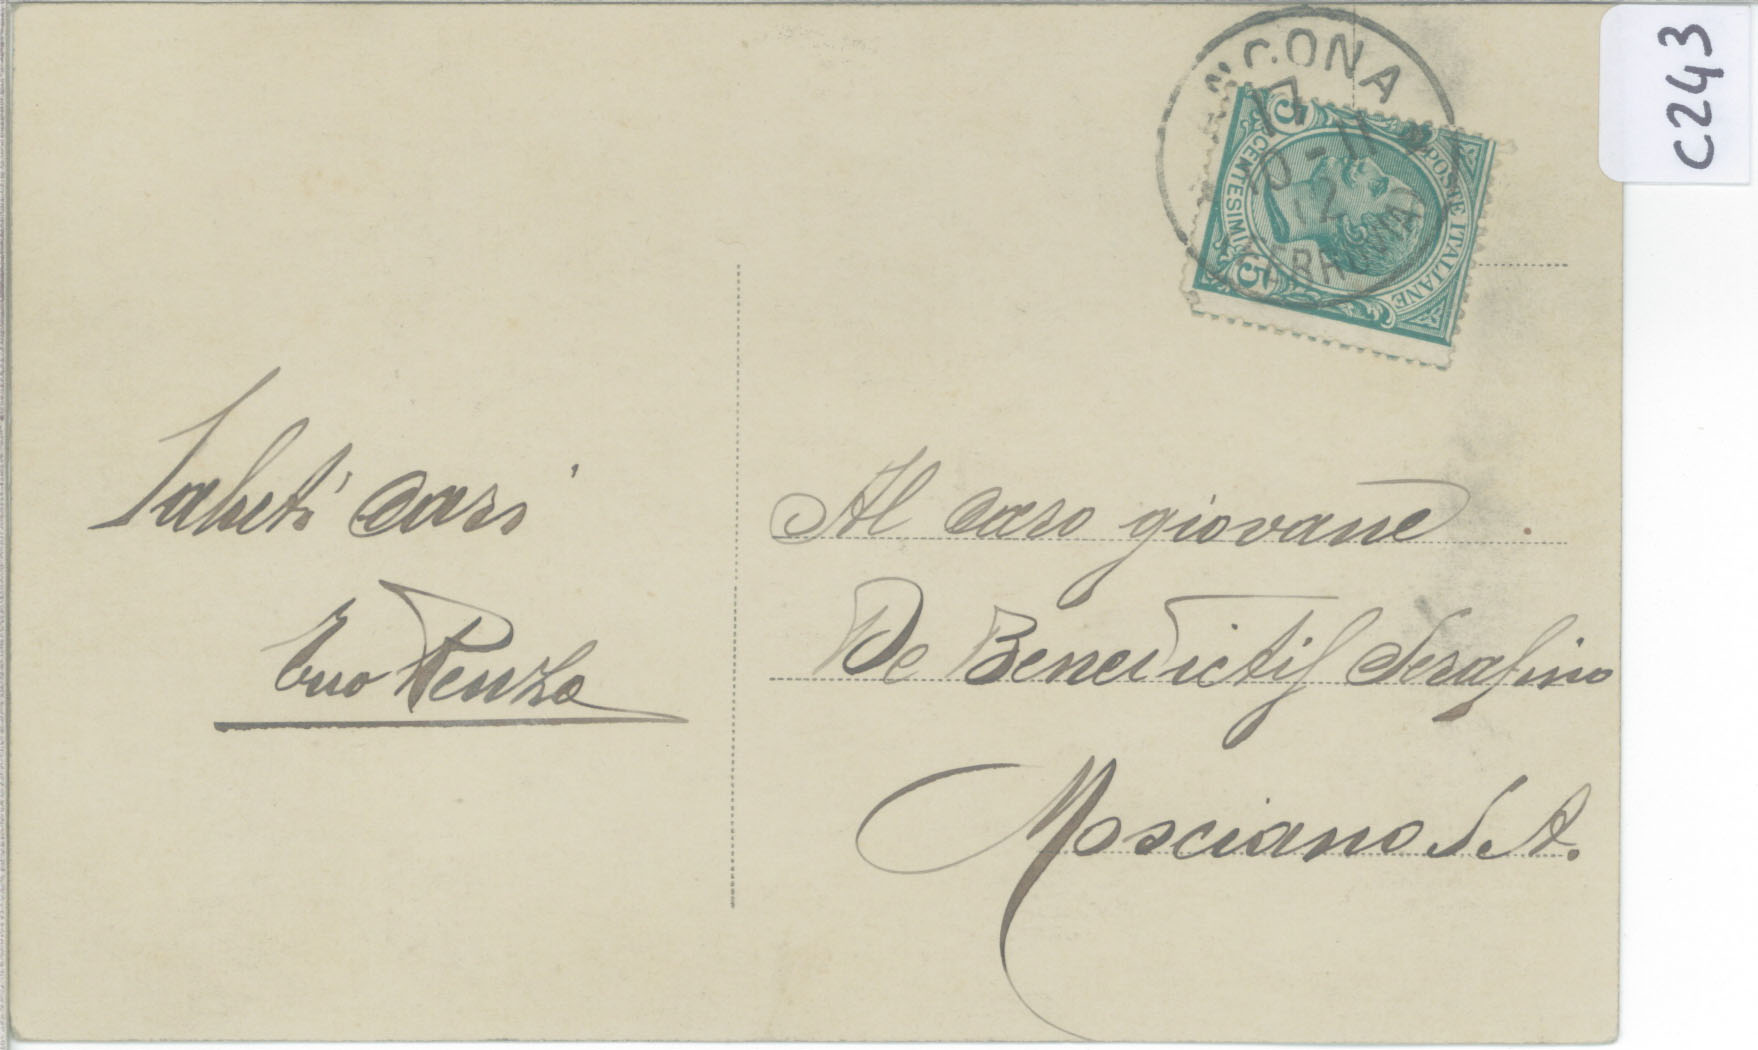 C243
ANCONA
17
10-11
12
(FERROVIA)
POSTE ITALIANE
CENTESIMI
5
5
Saluti cari
Tuo Renzo
Al caro giovane
De Benedictis Serafino
Mosciano S. A.